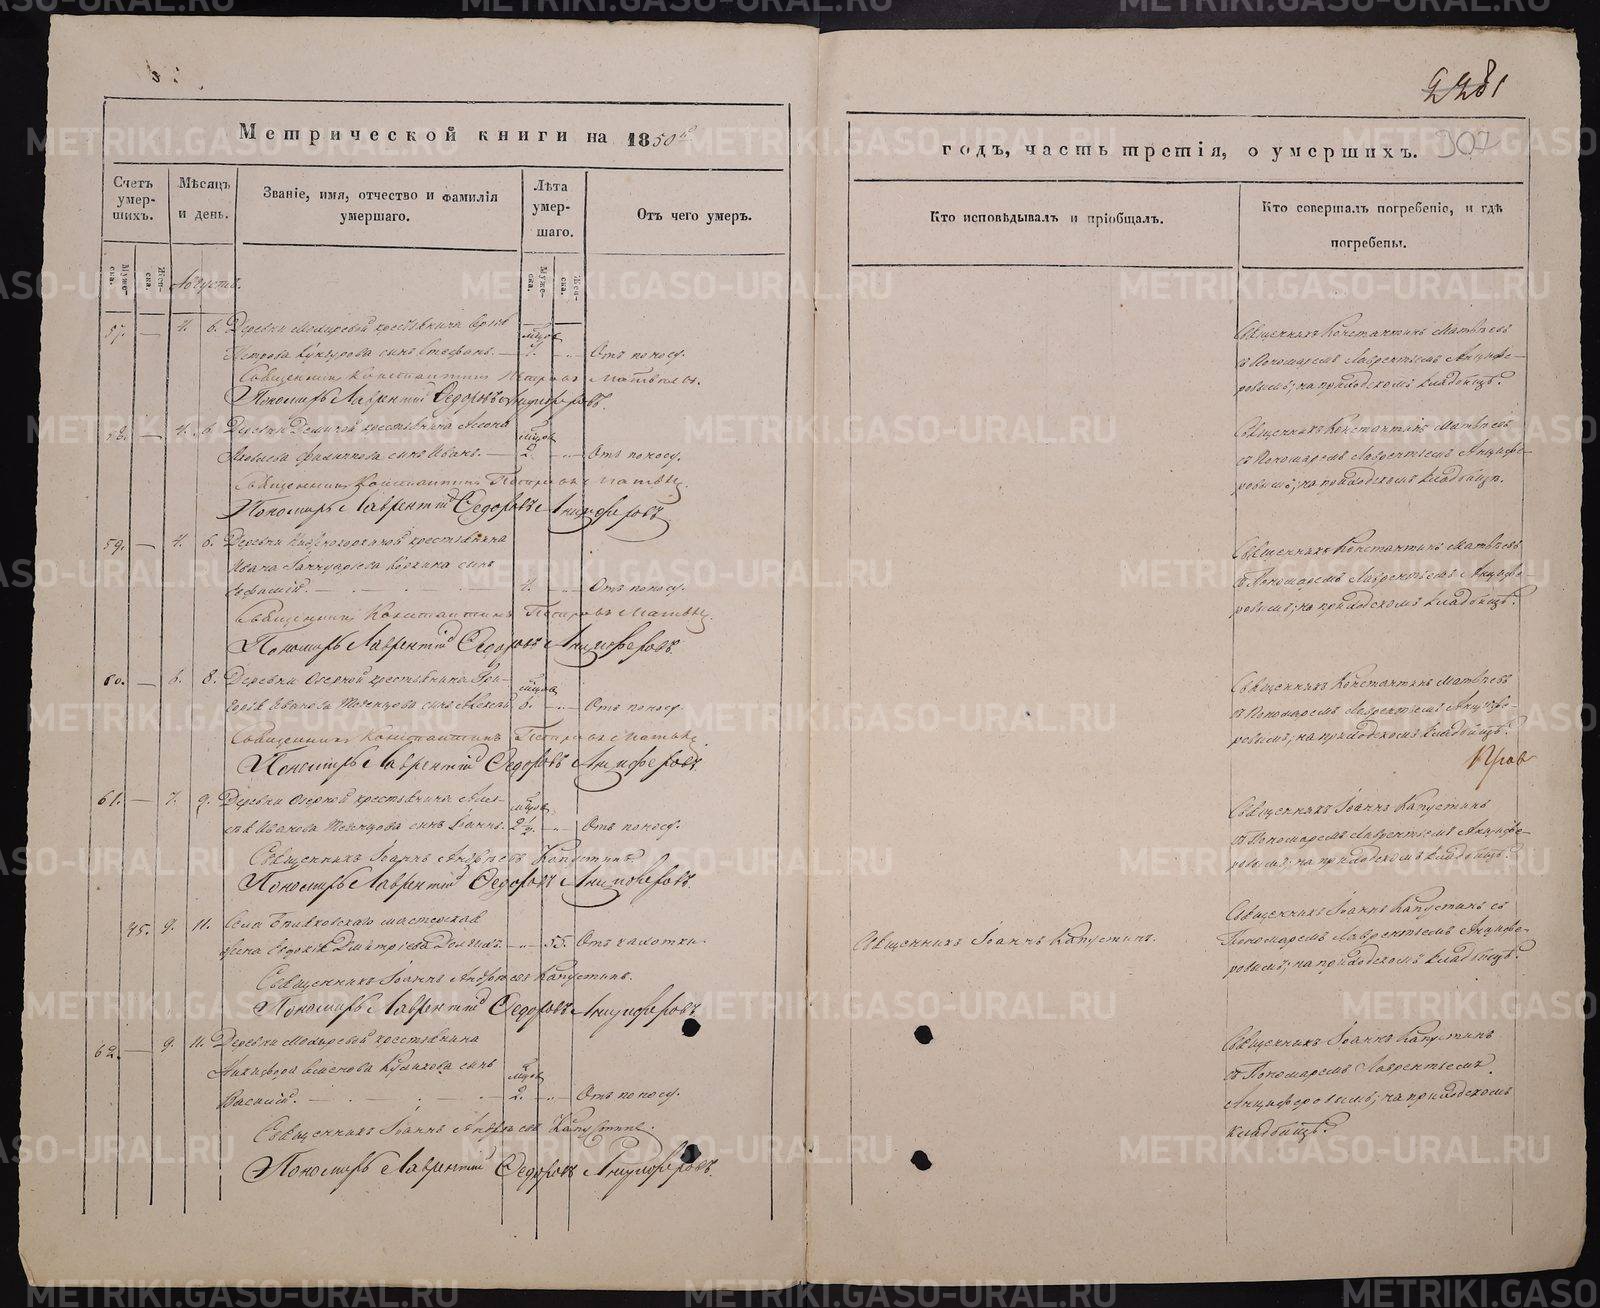 Метрической книги на 1850й
Счетъ умер-шихъ.
Мужеска.
Женска.
Мѣсяцъ и день.
Званіе, имя, отчество и фамилія умершаго.
Лѣта умер-шаго.
Муже-ска.
Жен-ска.
Отъ чего умеръ.
Августъ.
57. — 4. 6. Деревни Мокиревой крестьянина
Петрова сынъ Стефанъ. — мцов 7. Отъ поносу.
Священникъ Константинъ Петровъ Матвѣевъ.
Пономарь Лаврентій Ѳедоровъ Анцыферовъ.
58. — 4. 6. Деревни крестьянина
Яковлева сынъ Иванъ. — мцов 2. Отъ поносу.
Священникъ Константинъ Петровъ Матвѣев
Пономарь Лаврентій Ѳедоровъ Анцыферовъ
59. — 4. 6. Деревни крестьянина
Ивана сынъ
4. Отъ поносу.
Священникъ Константинъ Петровъ Матвѣев
Пономарь Лаврентій Ѳедоровъ Анцыферовъ.
60. — 6. 8. Деревни Озерной крестьянина
Иванова сынъ Алексѣй мцов 8. Отъ поносу.
Священникъ Константинъ Петровъ Матвѣев
Пономарь Лаврентій Ѳедоровъ Анцыферовъ.
61. — 7. 9. Деревни Озерной крестьянина Алек-
сѣя Иванова сынъ Іоаннъ. мцов 2 1/2. Отъ поносу.
Священникъ Іоаннъ Андреевъ Капустинъ.
Пономарь Лаврентій Ѳедоровъ Анцыферовъ.
45. 9. 11. Села мастерская
жена Евдокія Дмитріева 55. Отъ чахотки.
Священникъ Іоаннъ Андреевъ Капустинъ.
Пономарь Лаврентій Ѳедоровъ Анцыферовъ
62. — 9. 11. Деревни Мокиревой крестьянина
Никифора Семенова Куликова сынъ
Василій. мцов 2. Отъ поносу.
Священникъ Іоаннъ Андреевъ Капустинъ.
Пономарь Лаврентій Ѳедоровъ Анцыферовъ.
2281
307
годъ, часть третія, о умершихъ.
Кто исповѣдывалъ и пріобщалъ.
Кто совершалъ погребеніе, и гдѣ погребены.
Священникъ Константинъ Матвѣевъ
съ Пономаремъ Лаврентьемъ Анцыфе-
ровымъ; на приходскомъ кладбищѣ.
Священникъ Константинъ Матвѣевъ
съ Пономаремъ Лаврентьемъ Анцыфе-
ровымъ; на приходскомъ кладбищѣ.
Священникъ Константинъ Матвѣевъ
съ Пономаремъ Лаврентьемъ Анцыфе-
ровымъ; на приходскомъ кладбищѣ.
Священникъ Константинъ Матвѣевъ
съ Пономаремъ Лаврентьемъ Анцыфе-
ровымъ; на приходскомъ кладбищѣ.
Священникъ Іоаннъ Капустинъ
съ Пономаремъ Лаврентьемъ Анцыфе-
ровымъ; на приходскомъ кладбищѣ.
Священникъ Іоаннъ Капустинъ.
Священникъ Іоаннъ Капустинъ съ
Пономаремъ Лаврентьемъ Анцыфе-
ровымъ; на приходскомъ кладбищѣ.
Священникъ Іоаннъ Капустинъ
съ Пономаремъ Лаврентьемъ
Анцыферовымъ; на приходскомъ
кладбищѣ.
METRIKI.GASO-URAL.RU